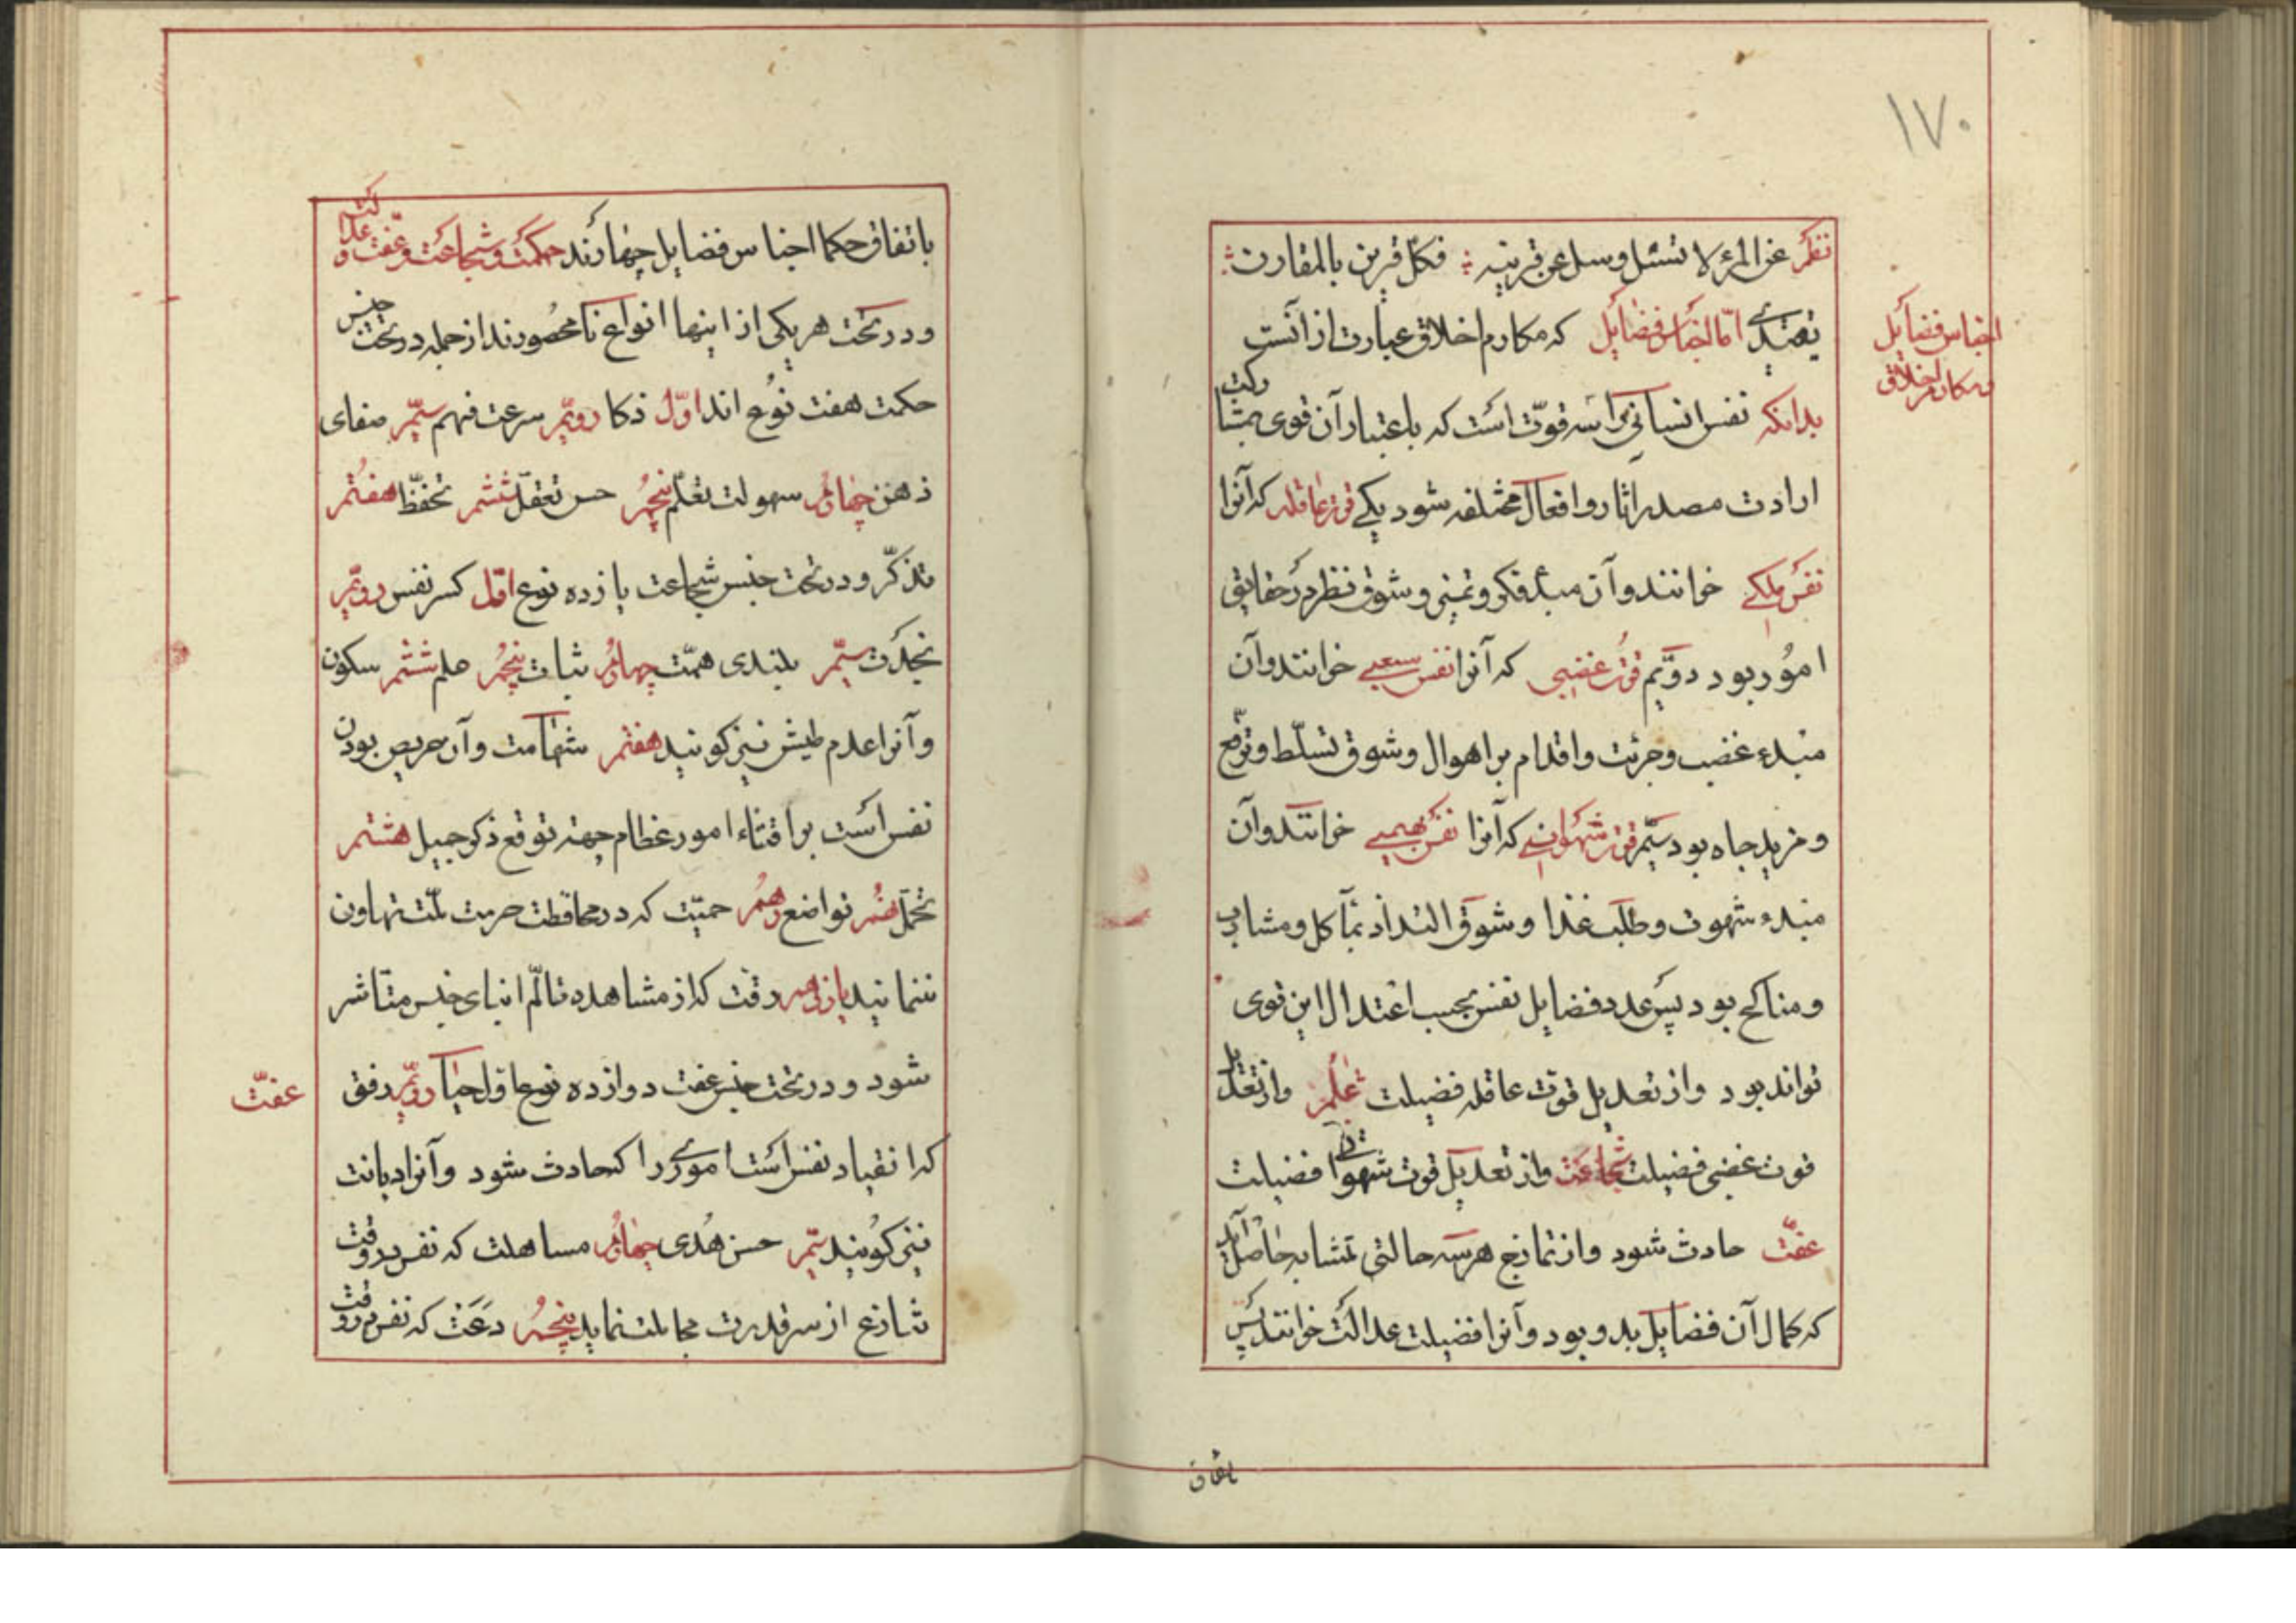 ۱۷۰
نظم عن المرء لا تسئل وسل عن قرینه فکل قرین بالمقارن
یقتدی اما اجناس فضایل که مکارم اخلاق عبارت از آنست
اجناس فضایل
و مکارم اخلاق
بدانکه نفس انسانی را سه قوت است که باعتبار آن قوی بمشارکت
ارادت مصدر اثار و افعال مختلفه شود یکی قوت عاقله که آنرا
نفس ملکی خوانند و آن مبدأ فکر و تمیز و شوق نظر در حقایق
امور بود دویم قوت غضبی که آنرا نفس سبعی خوانند و آن
مبدء غضب و جرئت و اقدام بر اهوال و شوق تسلط و ترفع
و مزید جاه بود سیم قوت شهوانی که آنرا نفس بهیمی خوانند و آن
مبدء شهوت و طلب غذا و شوق التذاذ بمآکل و مشارب
و مناکح بود پس عدد فضایل نفس بحسب اعتدال این قوی
تواند بود و از تعدیل قوت عاقله فضیلت علم و از تعدیل
قوت غضبی فضیلت شجاعت و از تعدیل قوت شهوانی فضیلت
عفت حادث شود و از تمازج هر سه حالتی متشابه حاصل آید
که کمال آن فضایل بدو بود و آنرا فضیلت عدالت خوانند پس
باتفاق
باتفاق حکما اجناس فضایل چهارند حکمت و شجاعت و عفت و عدالت
و در تحت هر یکی از اینها انواع نامحصورند از جمله در تحت جنس
حکمت هفت نوع اند اول ذکا دویم سرعت فهم سیم صفای
ذهن چهارم سهولت تعلم پنجم حسن تعقل ششم تحفظ هفتم
تذکر و در تحت جنس شجاعت یازده نوع اول کبر نفس دویم
نجدت سیم بلندی همت چهارم ثبات پنجم حلم ششم سکون
و آنرا عدم طیش نیز کویند هفتم شهامت و آن حریص بودن
نفس است بر اقتناء امور عظام جهته توقع ذکر جمیل هشتم
تحمل نهم تواضع دهم حمیت که در محافظت حرمت ملت تهاون
ننمایند یازدهم رقت که از مشاهده تالم ابنای جنس متاثر
شود و در تحت جنس عفت دوازده نوع اول حیا دویم رفق
عفت
که انقیاد نفس است اموری را که حادث شود و آنرا دیانت
نیز کویند سیم حسن هدی چهارم مساهلت که نفس در وقت
تنازع از سر قدرت مجاملت نماید پنجم دعت که نفس در وقت